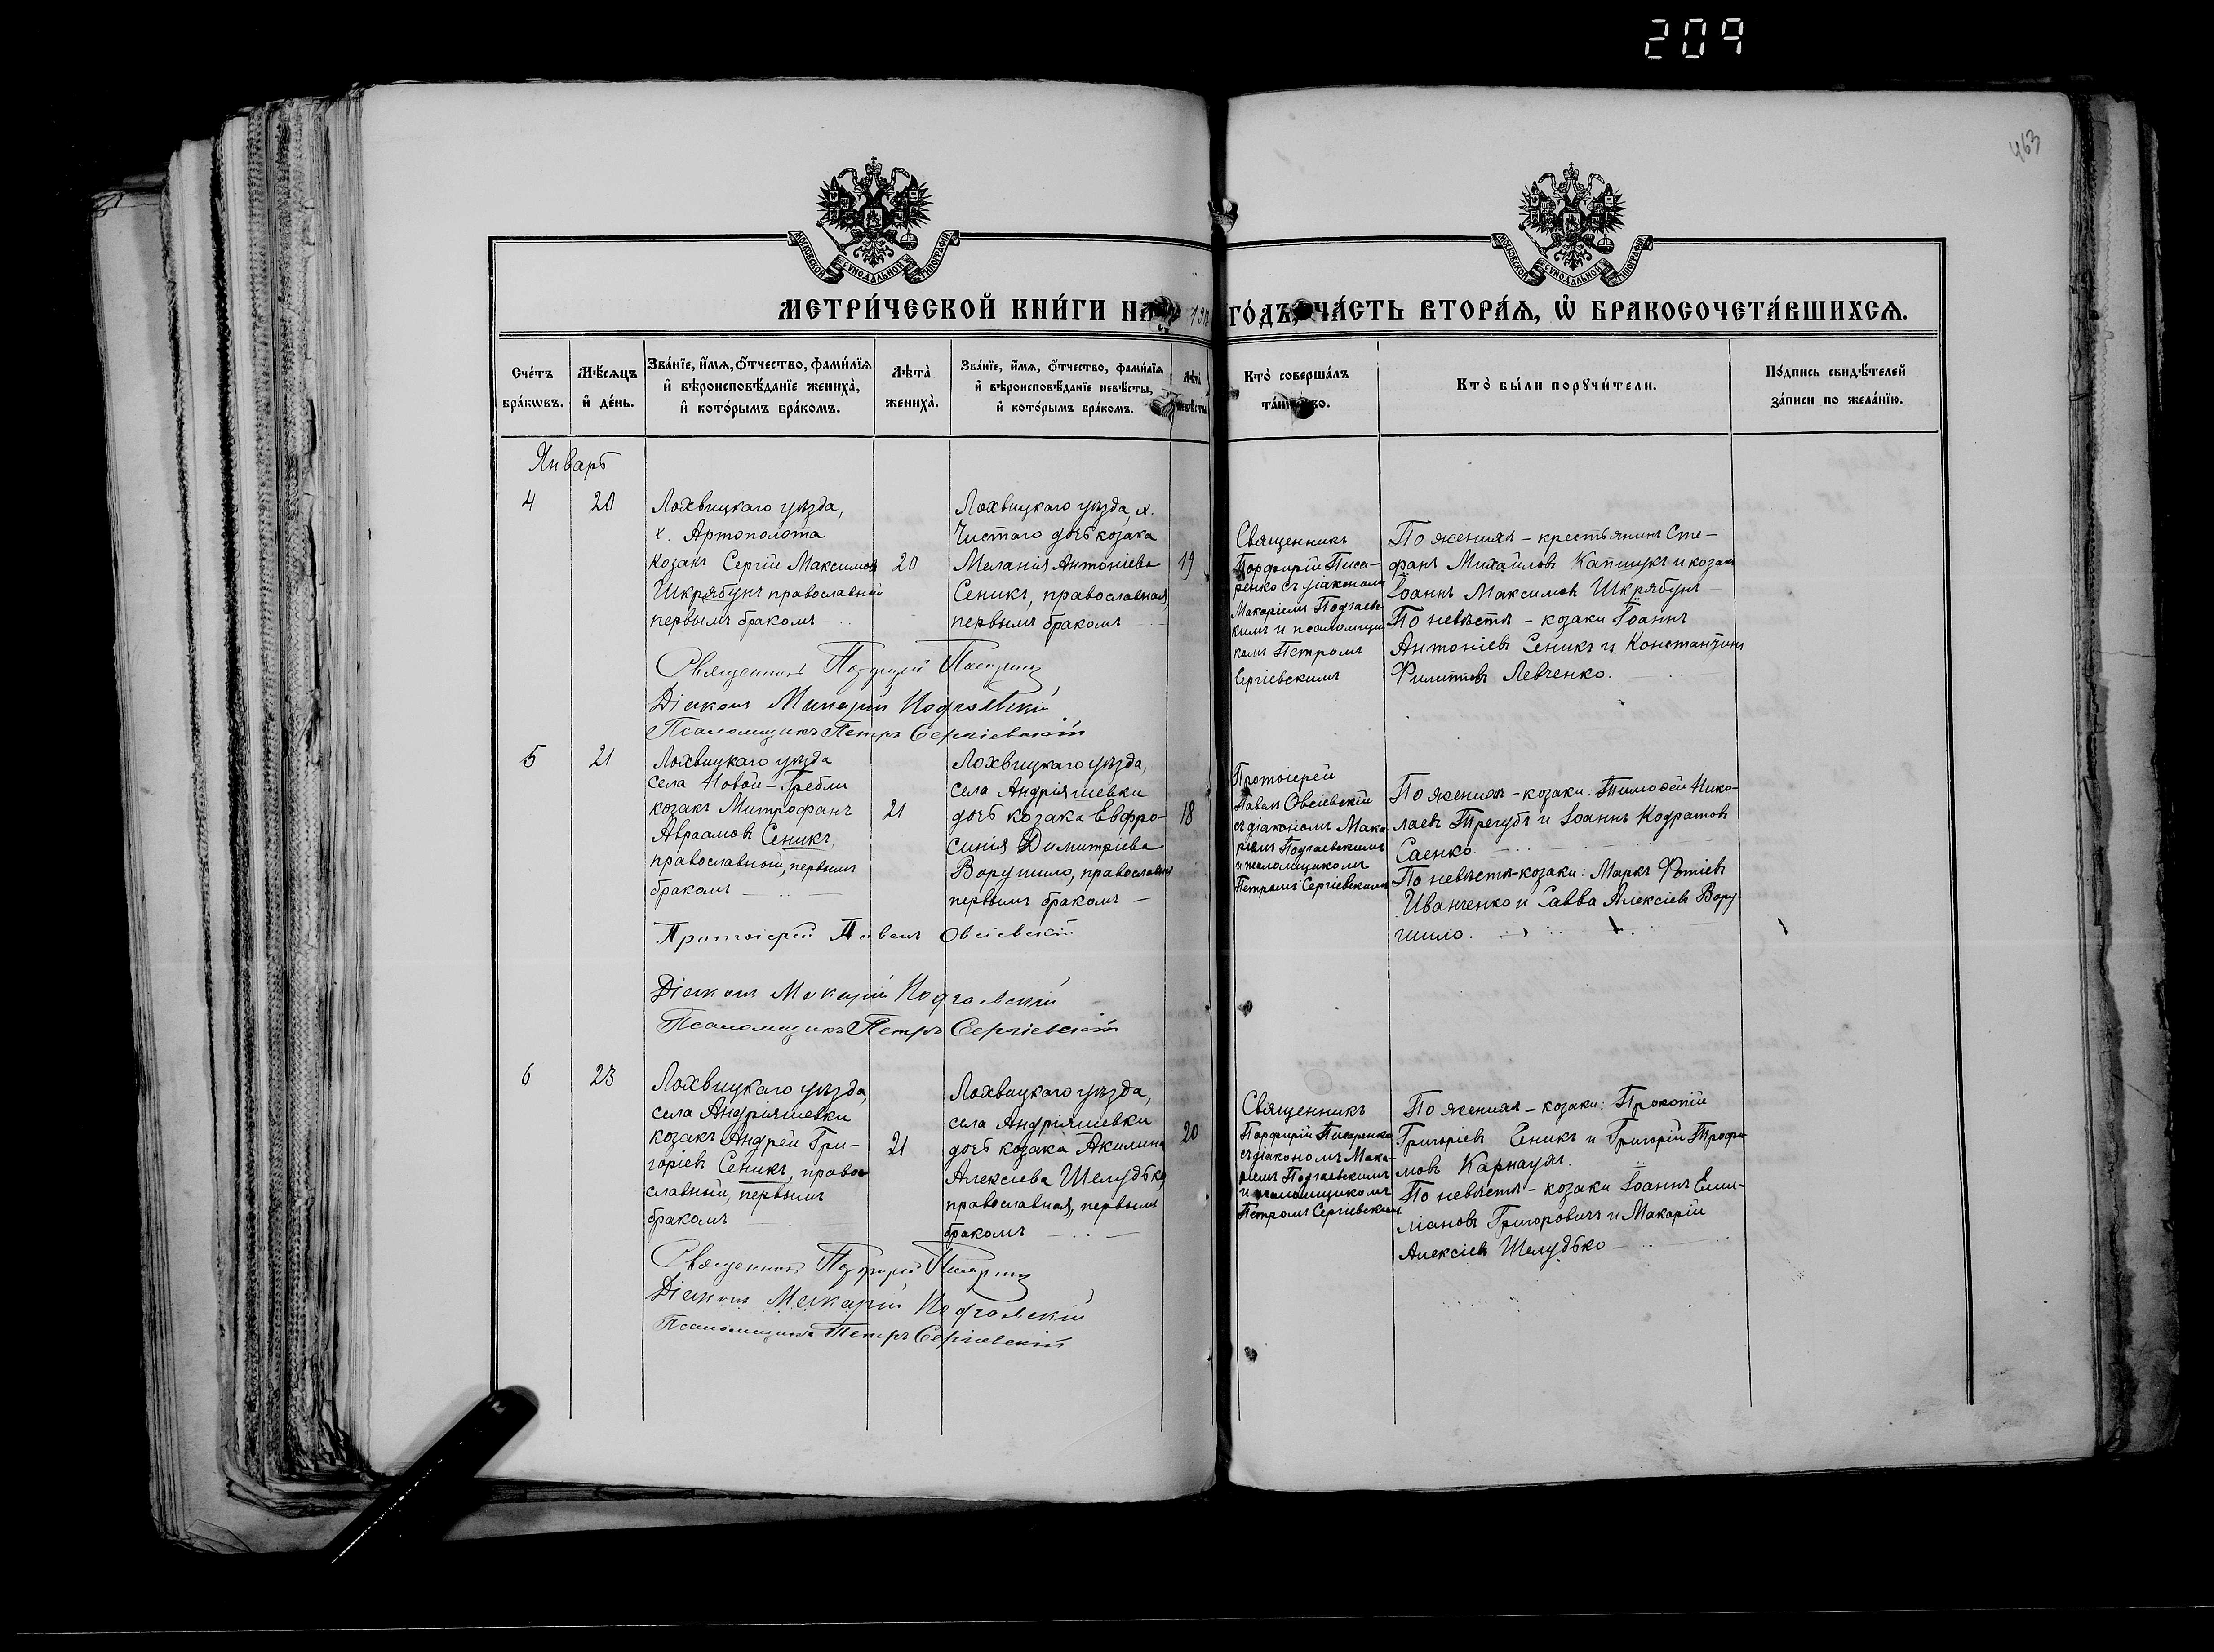 209
463
МОСКОВСКОЙ СУНОДАЛЬНОЙ ТИПОГРАФІИ
МОСКОВСКОЙ СУНОДАЛЬНОЙ ТИПОГРАФІИ
МЕТРИ́ЧЕСКОЙ КНИ́ГИ НА ГО́ДЪ, ЧА́СТЬ ВТОРА́Ѧ, Ѽ БРАКОСОЧЕТА́ВШИХСѦ.
Сче́тъ бра́кѡвъ.
Мѣ́сѧцъ и҆ де́нь.
Зва́нїе, и҆́мѧ, о҆́тчество, фами́лїѧ и҆ вѣроисповѣ́данїе жениха̀, и҆ кото́рымъ бра́комъ.
Лѣ́та жениха̀.
Зва́нїе, и҆́мѧ, о҆́тчество, фами́лїѧ и҆ вѣроисповѣ́данїе невѣ́сты, и҆ кото́рымъ бра́комъ.
Лѣ́та невѣ́сты
Кто̀ соверша́лъ та́инство.
Кто̀ бы́ли порꙋчи́тели.
По́дпись свидѣ́телей за́писи по жела́нїю.
Январь
4
20
Лохвицкаго уѣзда,
х. Артополота
козакъ Сергій Максимовъ
Шкрябунъ православный
первымъ бракомъ
20
Лохвицкаго уѣзда, х.
Чистаго дочь козака
Меланія Антоніева
Сеникъ, православная,
первымъ бракомъ
19
Священникъ
Порфирій Писа-
ренко съ діакономъ
Макаріемъ Подгаевс-
кимъ и псаломщи-
комъ Петромъ
Сергіевскимъ
По женихѣ – крестьянинъ Сте-
фанъ Михайловъ Капшукъ и козакъ
Іоаннъ Максимовъ Шкрябунъ
По невѣстѣ – козаки Іоаннъ
Антоніевъ Сеникъ и Константинъ
Филиповъ Левченко.
Священникъ Порфирій Писаренко
Діаконъ Макарій Подгаевскій
Псаломщикъ Петръ Сергіевскій
5
21
Лохвицкаго уѣзда
села Новой-Гребли
козакъ Митрофанъ
Авраамовъ Сеникъ,
православный, первымъ
бракомъ
21
Лохвицкаго уѣзда,
села Андріяшевки
дочь козака Евфро-
синія Димитріева
Ворушило, православная
первымъ бракомъ –
18
Протоіерей
Павелъ Овсіевскій
съ діакономъ Мака-
ріемъ Подгаевскимъ
и псаломщикомъ
Петромъ Сергіевскимъ
По женихѣ – козаки: Тимофей Нико-
лаевъ Трегубъ и Іоаннъ Кодратовъ
Саенко.
По невѣстѣ – козаки: Маркъ Фотіевъ
Иванченко и Савва Алексіевъ Вору-
шило.
Протоіерей Павелъ Овсіевскій
Діаконъ Макарій Подгаевскій
Псаломщикъ Петръ Сергіевскій
6
23
Лохвицкаго уѣзда,
села Андріяшевки
козакъ Андрей Гри-
горіевъ Сеникъ, право-
славный, первымъ
бракомъ
21
Лохвицкаго уѣзда,
села Андріяшевки
дочь козака Акилина
Алексіева Шелудько,
православная, первымъ
бракомъ
20
Священникъ
Порфирій Писаренко
съ діакономъ Мака-
ріемъ Подгаевскимъ
и псаломщикомъ
Петромъ Сергіевскимъ
По женихѣ – козаки: Прокопій
Григоріевъ Сеникъ и Григорій Трофи-
мовъ Карнаухъ.
По невѣстѣ – козаки Іоаннъ Еми-
ліановъ Григоровичъ и Макарій
Алексіевъ Шелудько –
Священникъ Порфирій Писаренко
Діаконъ Макарій Подгаевскій
Псаломщикъ Петръ Сергіевскій